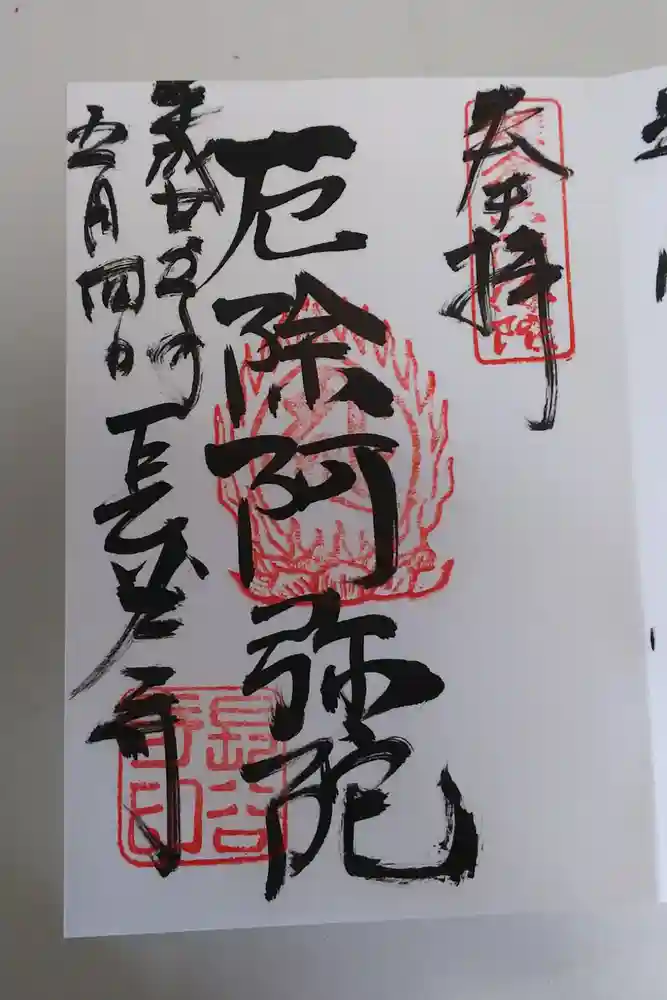 奉拝
厄除阿弥陀
平成廿五年
五月四日
長谷寺
長谷
寺印